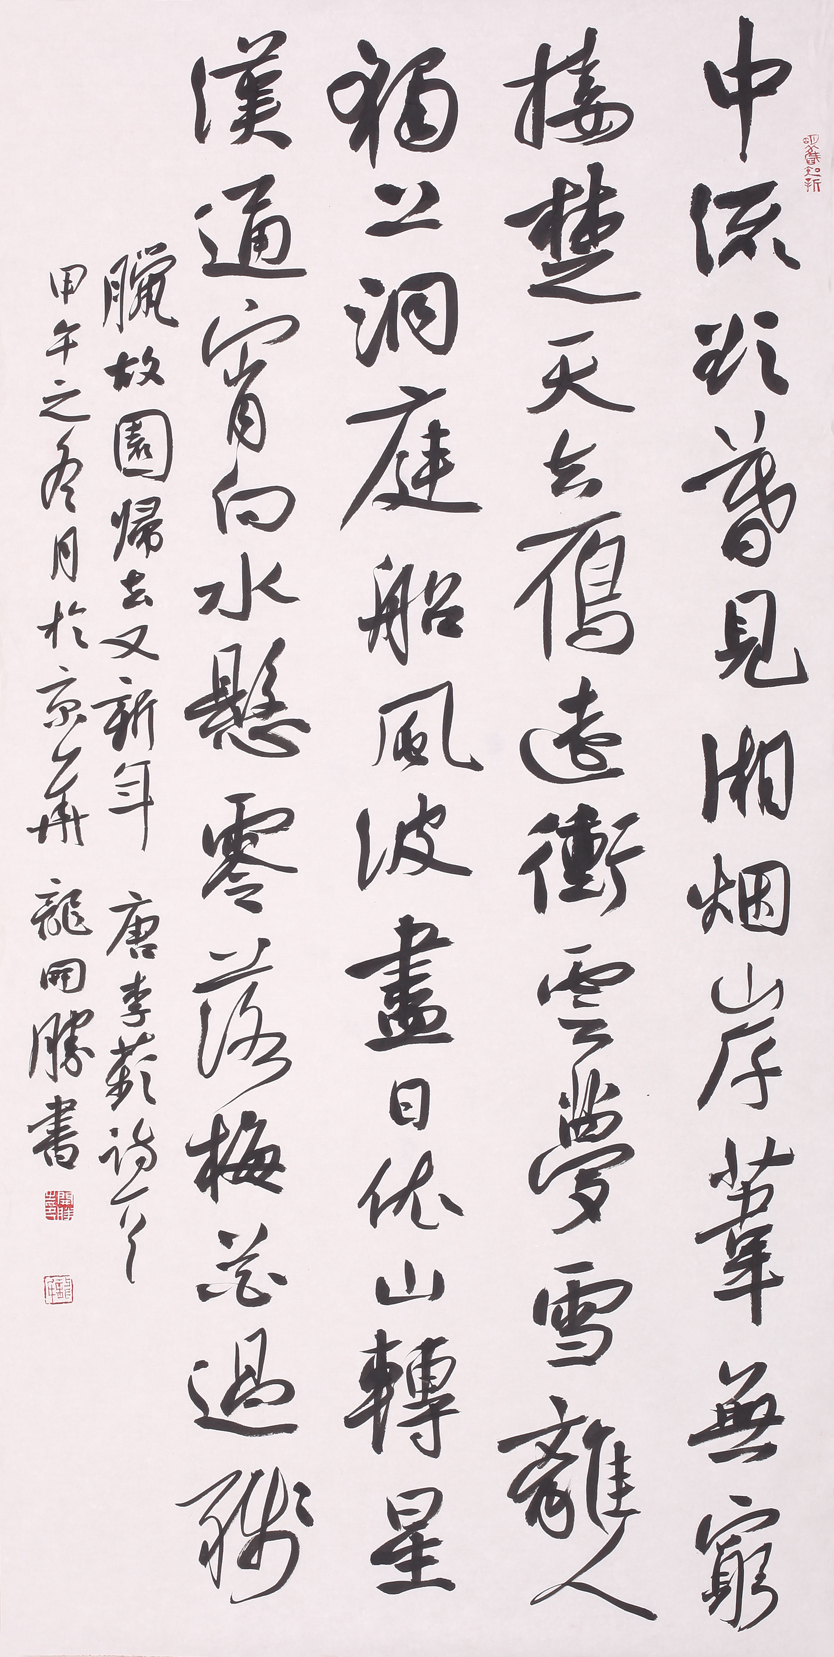 中流欲暮見湘烟岸葦無窮
接楚天去鴈遠衝雲夢雪離人
獨上洞庭船風波盡日依山轉星
漢通宵向水懸零落梅花過殘
臘故園歸去又新年 唐李蘋詩一首
甲午之冬月於京華 龍開勝書